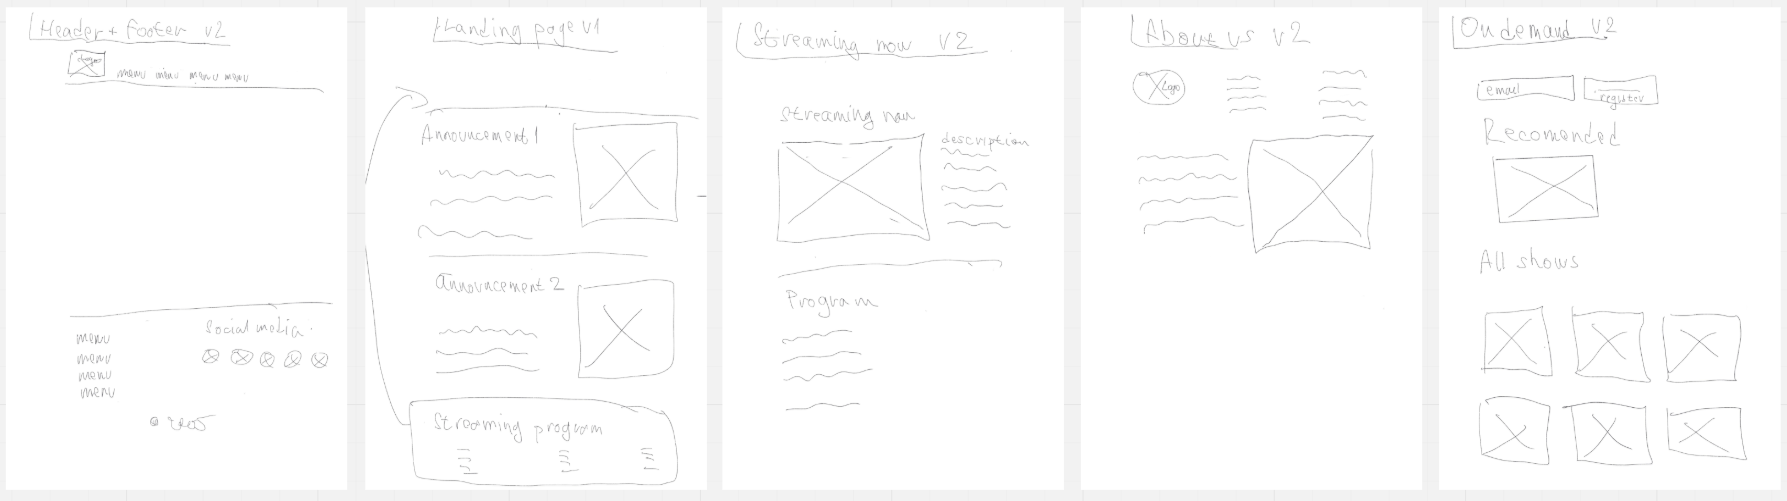 Header + footer v2
Logo
menu menu menu menu
Social media
menu
menu
menu
menu
Landing page v1
Announcement 1
Announcement 2
Streaming program
Streaming now v2
Streaming now
description
Program
About us v2
Logo
On demand v2
email
register
Recomended
All shows